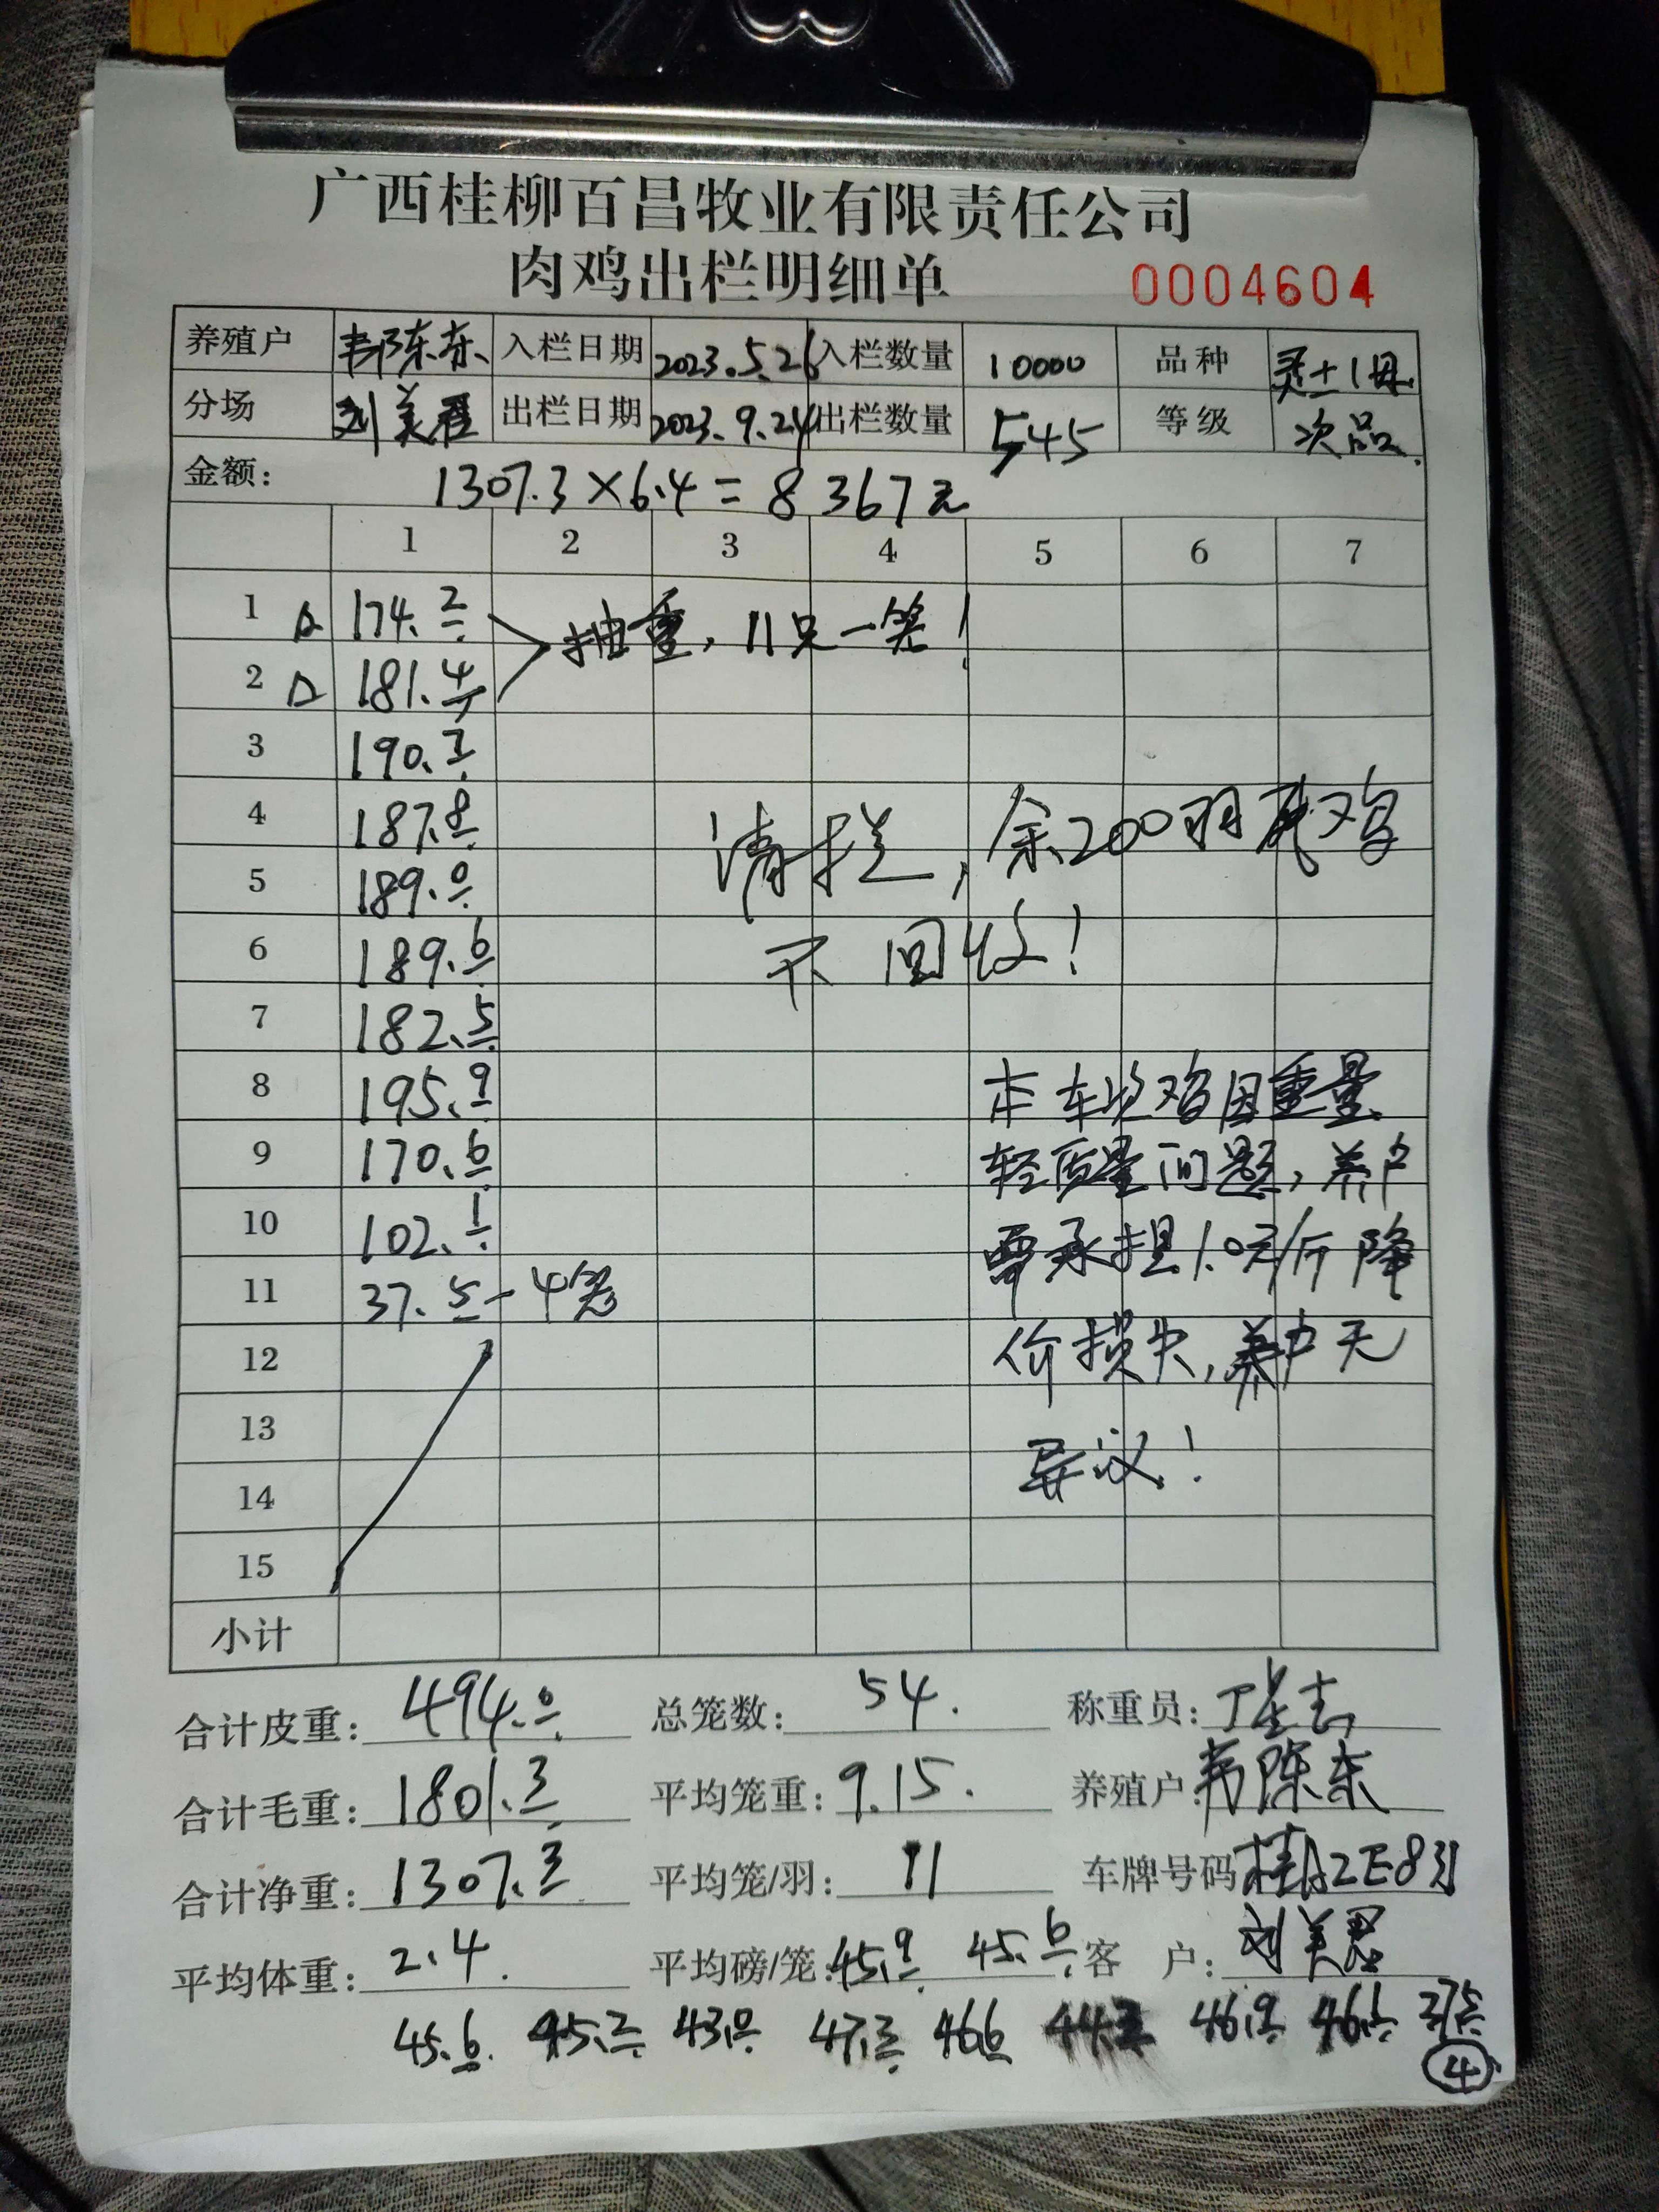 广西桂柳百昌牧业有限责任公司
肉鸡出栏明细单 0004604
养殖户 韦陈东 入栏日期 2023.5.26 入栏数量 10000 品种 灵土1母
分场 出栏日期 2023.9.24 出栏数量 545 等级 次品
金额: 1307.3×6.4=8367元
1 2 3 4 5 6 7
1 △ 174.2 抽重,11只一笼!
2 △ 181.4
3 190.3
4 187.8 清栏,余200羽残鸡
5 189.0
6 189.6 不回收!
7 182.5
8 195.9 本车次鸡因重量
9 170.6 轻质量问题,养户
10 102.1 要承担1.0元/斤降
11 37.5-4笼
12 价损失,养户无
13
14 异议!
15
小计
合计皮重: 494.0 总笼数: 54. 称重员:
合计毛重: 1801.3 平均笼重: 9.15. 养殖户: 韦陈东
合计净重: 1307.3 平均笼/羽: 11 车牌号码
平均体重: 2.4. 平均磅/笼: 45.9 45.6 客 户:
45.6 45.2 43.0 47.3 46.6 46.9 46.1 37.5
④